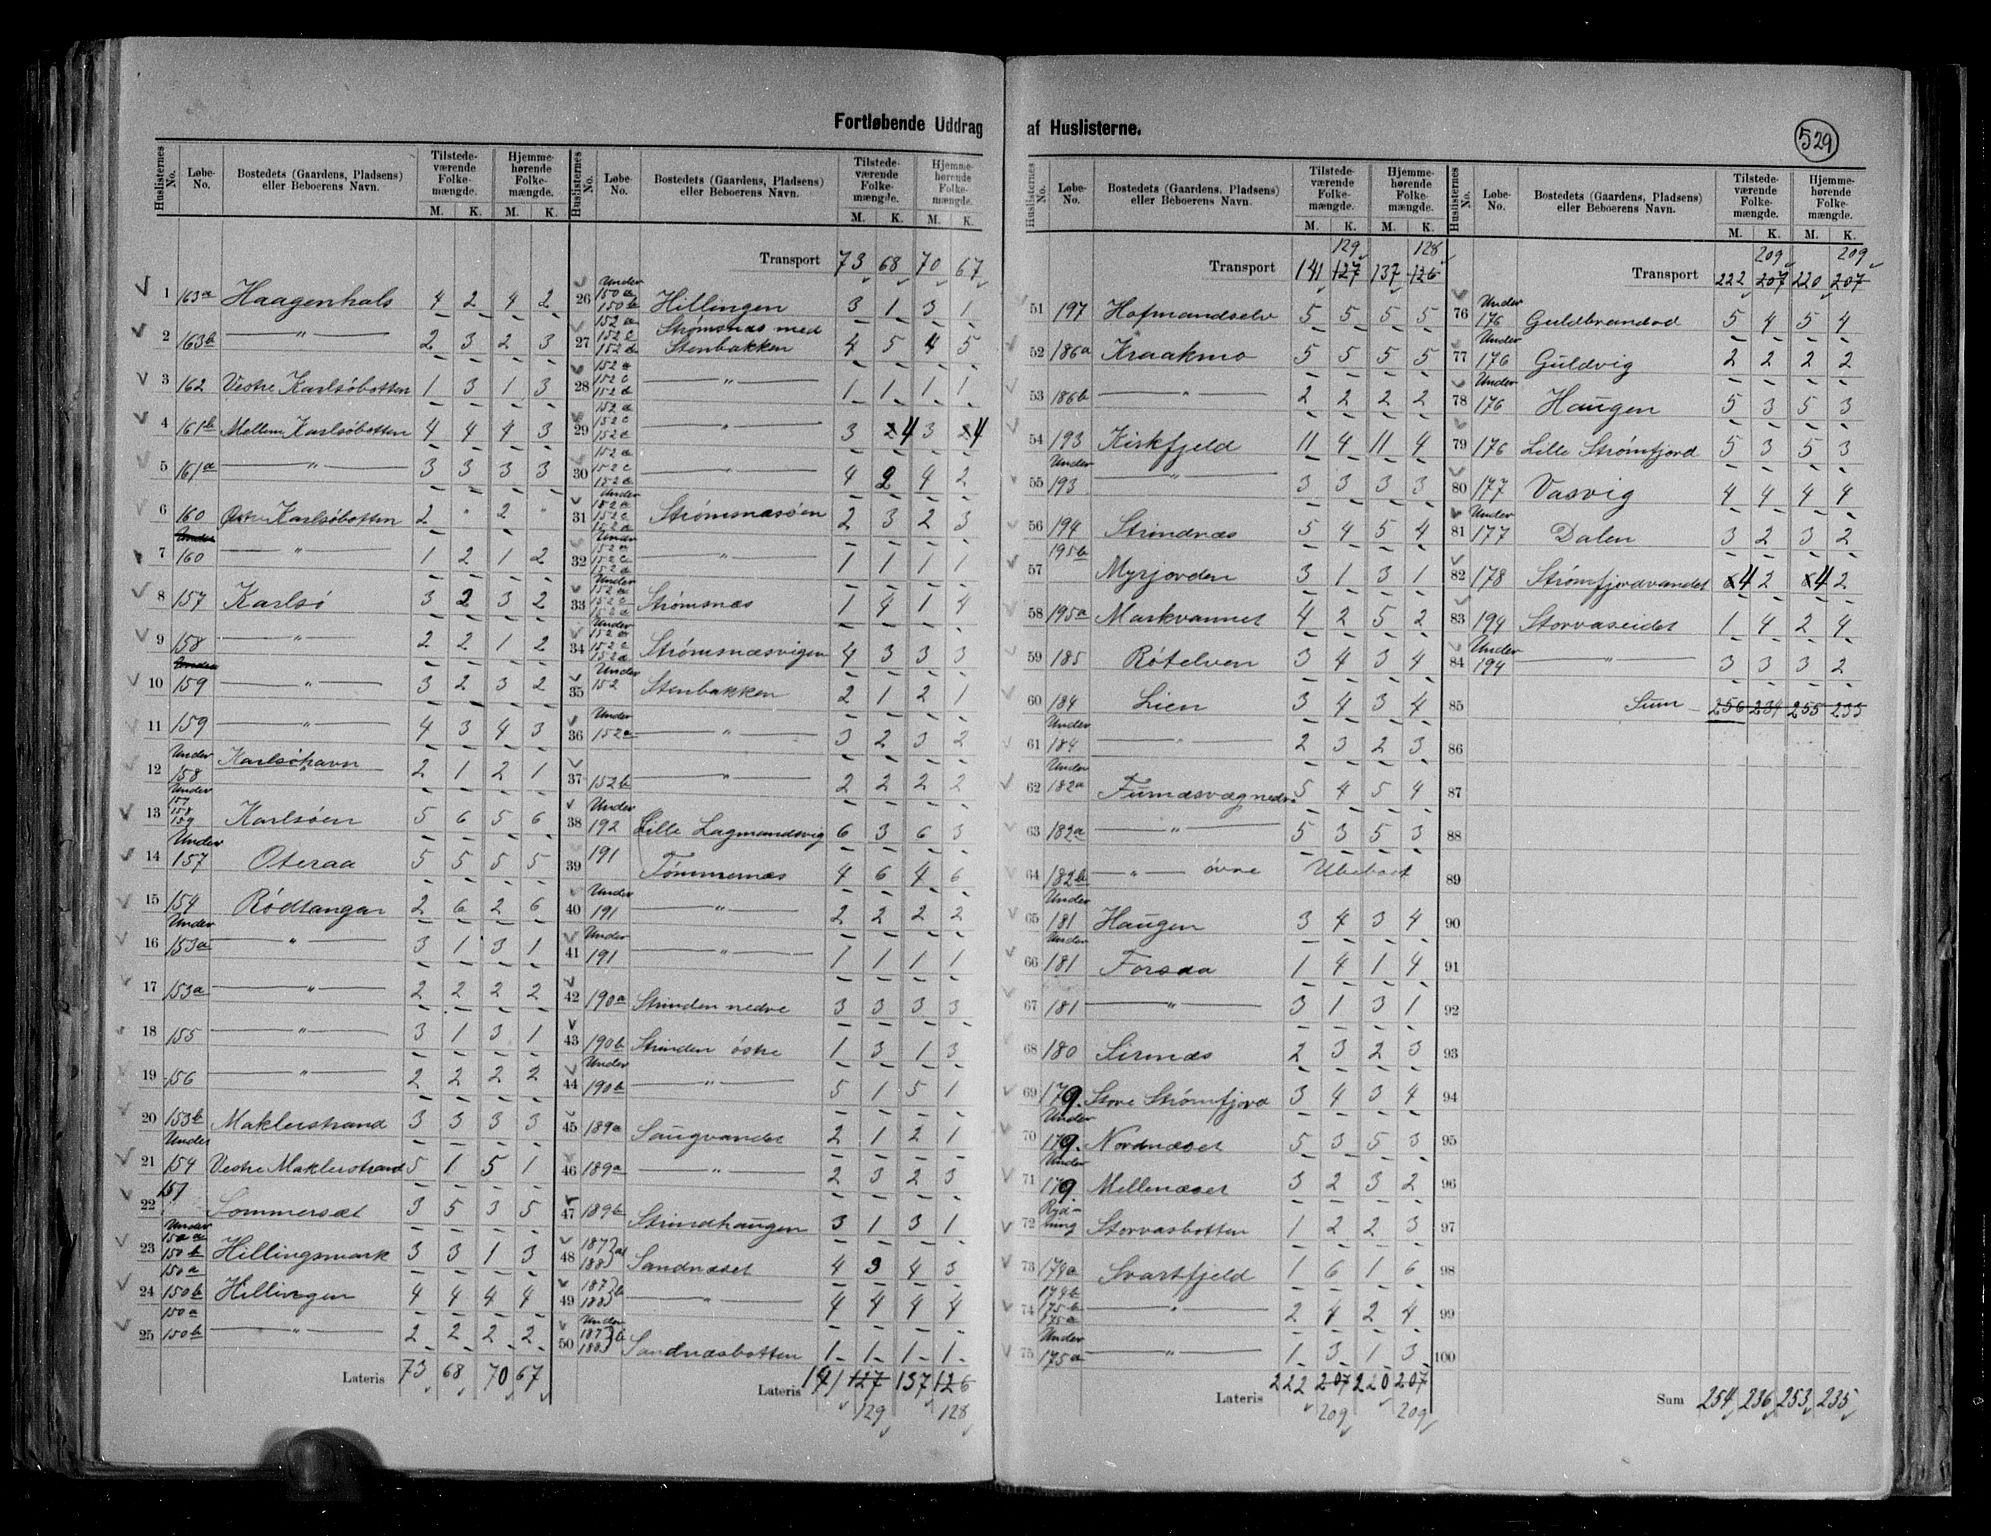 Fortløbende Uddrag af Huslisterne.
529
Huslisternes No. Løbe-No. Bostedets (Gaardens, Pladsens) eller Beboerens Navn. Tilstedeværende Folkemængde. M. K. Hjemmehørende Folkemængde. M. K.
1 163a Haagenhals 4 2 4 2
2 163b —"— 2 3 2 3
3 162 Vestre Karlsøbotten 1 3 1 3
4 161b Mellem Karlsøbotten 4 4 4 3
5 161a —"— 3 3 3 3
6 160 Østre Karlsøbotten 2 " 2 "
7 Under 160 —"— 1 2 1 2
8 157 Karlsö 3 2 3 2
9 158 —"— 2 2 1 2
10 Under 159 —"— 3 2 3 2
11 159 —"— 4 3 4 3
12 Under 158 Karlsöhavn 2 1 2 1
13 Under 157 158 159 Karlsøen 5 6 5 6
14 Under 157 Oteraa 5 5 5 5
15 154 Rødtangan 2 6 2 6
16 Under 153a —"— 3 1 3 1
17 153a —"— 2 2 2 2
18 155 —"— 3 1 3 1
19 156 —"— 2 2 2 2
20 153b Maklerstrand 3 3 3 3
21 Under 154 Vestre Maklerstrand 5 1 5 1
22 151 Sommersæt 3 5 3 5
23 Under 150a 150b Hillingsmark 3 3 1 3
24 150a 150b Hillingen 4 4 4 4
25 150a 150b —"— 2 2 2 2
Lateris 73 68 70 67
Huslisternes No. Løbe-No. Bostedets (Gaardens, Pladsens) eller Beboerens Navn. Tilstedeværende Folkemængde. M. K. Hjemmehørende Folkemængde. M. K.
Transport 73 68 70 67
26 Under 150a 150b Hillingen 3 1 3 1
27 152a 152c 152d Strømsnæs med Stenbakken 4 5 4 5
28 152a 152c 152d —"— 1 1 1 1
29 152a 152c 152d —"— 3 2 4 3 2 4
30 152a 152c 152d —"— 4 2 4 2
31 Under 152a 152c 152d Strømsnæsøen 2 3 2 3
32 Under 152a 152c 152d —"— 1 1 1 1
33 Under 152a 152c 152d Strømsnæs 1 4 1 4
34 Under 152a 152c 152d Strømsnæsvigen 4 3 3 3
35 Under 152 Stenbakken 2 1 2 1
36 Under 152a —"— 3 2 3 2
37 152b —"— 2 2 2 2
38 Under 192 Lille Lagmandsvig 6 3 6 3
39 191 Tømmernæs 4 6 4 6
40 Under 191 —"— 2 2 2 2
41 Under 191 —"— 1 1 1 1
42 190a Strinden nedre 3 3 3 3
43 190b Strinden östre 1 3 1 3
44 Under 190b —"— 5 1 5 1
45 189a Saugvandet 2 1 2 1
46 189a —"— 2 3 2 3
47 189b Strindhaugen 3 1 3 1
48 187 188 a Sandnæset 4 3 4 3
49 187 188 b —"— 4 4 4 4
50 Under 187 188 b Sandnæsbotten 1 1 1 1
Lateris 141 127 137 126
129 128
Huslisternes No. Løbe-No. Bostedets (Gaardens, Pladsens) eller Beboerens Navn. Tilstedeværende Folkemængde. M. K. Hjemmehørende Folkemængde. M. K.
129 128
Transport 141 127 137 126
51 197 Hofmandselv 5 5 5 5
52 186a Kraakmo 5 5 5 5
53 186b —"— 2 2 2 2
54 193 Kirkfjeld 11 4 11 4
55 Under 193 —"— 3 3 3 3
56 194 Strindnæs 5 4 5 4
57 195b Myrjorden 3 1 3 1
58 195a Markvannet 4 2 5 2
59 185 Røtelven 3 4 3 4
60 184 Lien 3 4 3 4
61 Under 184 —"— 2 3 2 3
62 Under 182a Furnæsvæg nedre 5 4 5 4
63 182a —"— 5 3 5 3
64 182b —"— övre Ubeboet
65 Under 181 Haugen 3 4 3 4
66 Under 181 Forsaa 1 4 1 4
67 181 —"— 3 1 3 1
68 180 Sirnæs 2 3 2 3
69 179. Store Strømfjord 3 4 3 4
70 Under 179. Nordnæset 5 3 5 3
71 Under 179. Mellenæset 3 2 3 2
72 Rydning Storvasbotten 1 2 2 3
73 174a Svartfjeld 1 6 1 6
74 174b 175b 175a —"— 2 4 2 4
75 Under 175a —"— 1 3 1 3
Lateris 222 207 220 207
209 209
Huslisternes No. Løbe-No. Bostedets (Gaardens, Pladsens) eller Beboerens Navn. Tilstedeværende Folkemængde. M. K. Hjemmehørende Folkemængde. M. K.
209 209
Transport 222 207 220 207
76 Under 176 Guldbrandod 5 4 5 4
77 Under 176 Guldvig 2 2 2 2
78 Under 176 Haugen 5 3 5 3
79 176 Lille Strømfjord 5 3 5 3
80 177 Vasvig 4 4 4 4
81 Under 177 Dalen 3 2 3 2
82 178 Strømfjordvandet 4 2 4 2
83 194 Storvaseidet 1 4 2 4
84 Under 194 —"— 3 3 3 2
85 Sum 256 234 255 235
86
87
88
89
90
91
92
93
94
95
96
97
98
99
100
Sum 254 236 253 235